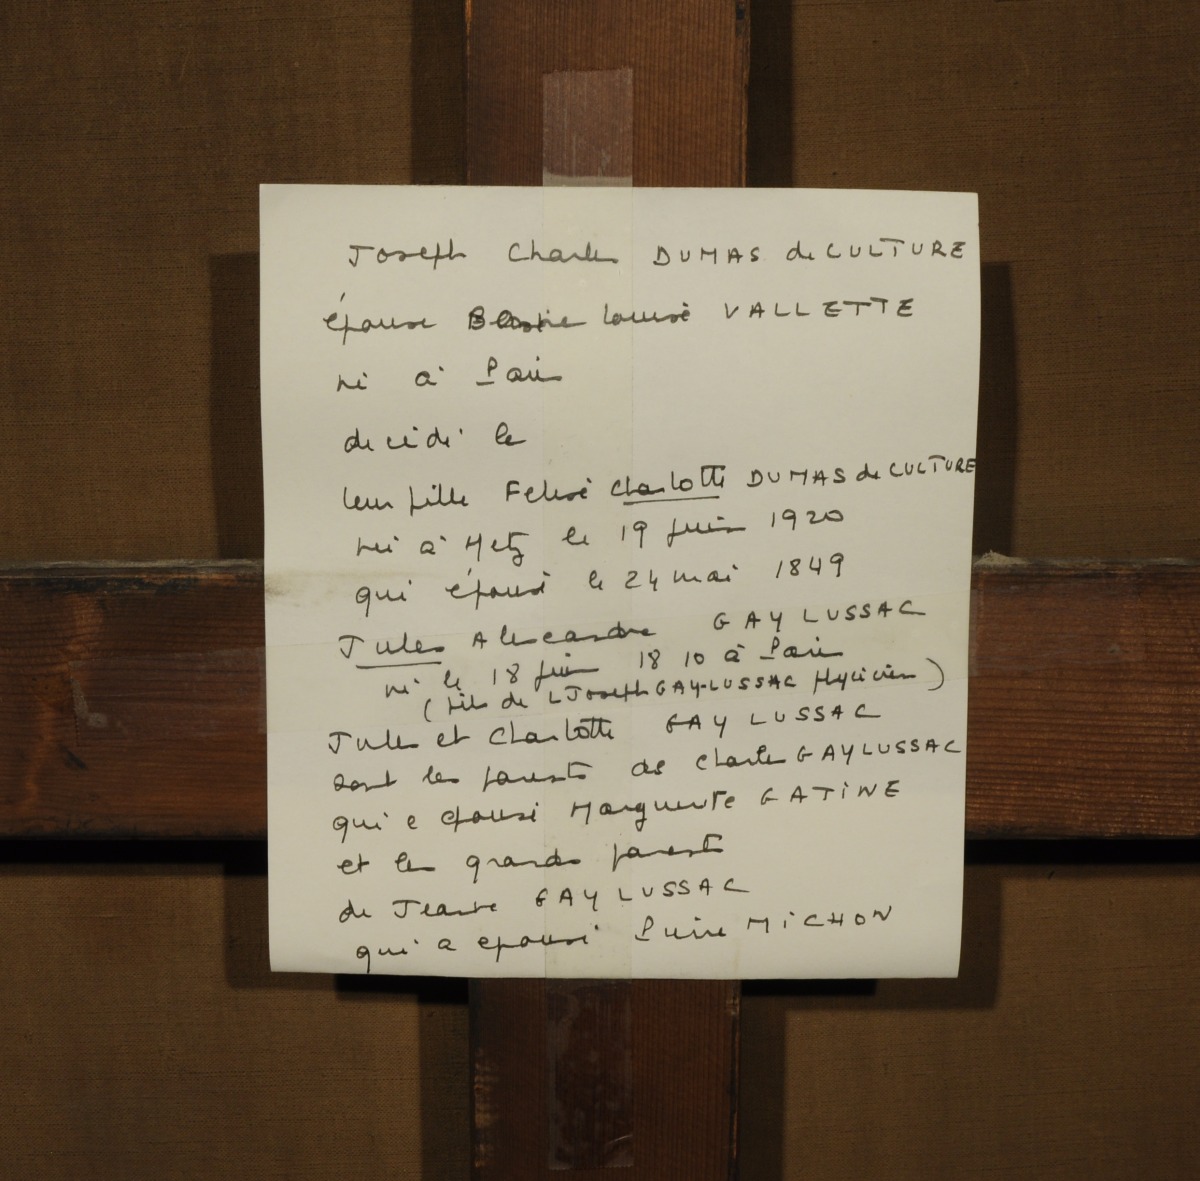 Joseph Charles DUMAS de CULTURE
épouse Louise VALLETTE
né à Paris
décédé le
leur fille Felisé Charlotte DUMAS de CULTURE
née à Metz le 19 juin 1920
qui épousé le 24 mai 1849
Jules Alexandre GAY LUSSAC
né le 18 juin 1810 à Paris
(fils de L Joseph GAY-LUSSAC physicien)
Jules et Charlotte GAY LUSSAC
sont les parents de Charles GAY LUSSAC
qui a épousé Marguerite GATINE
et les grands parents
de Jeanne GAY LUSSAC
qui a épousé MICHON